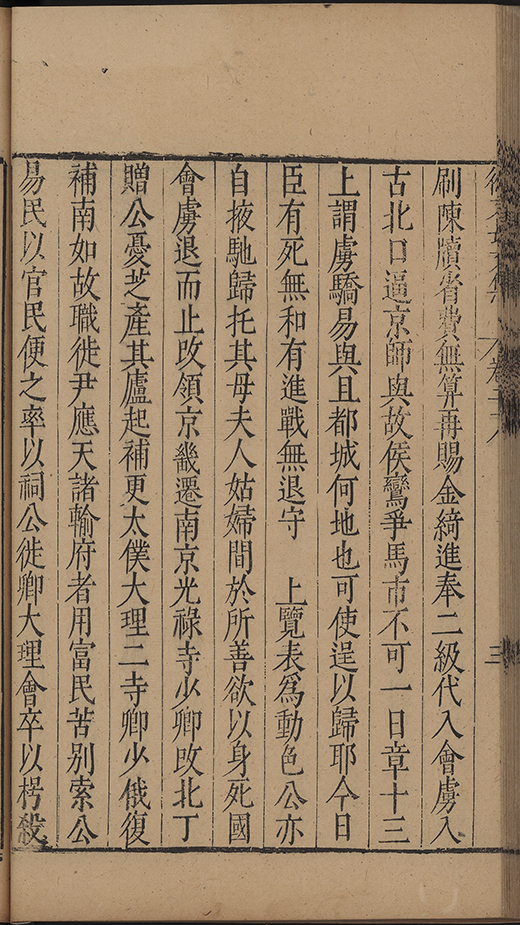 刷陳牘省費無算再賜金綺進奉二級代入會虜入
古北口逼京師與故侯鸞爭馬市不可一日章十三
上謂虜驕易與且都城何地也可使逞以歸耶今日
臣有死無和有進戰無退守　上覽表為動色公亦
自掖馳歸托其母夫人姑婦間於所善欲以身死國
會虜退而止改領京畿遷南京光祿寺少卿改北丁
贈公憂芝產其廬起補更太僕大理二寺卿少俄復
補南如故職徙尹應天諸輸府者用富民苦別索公
易民以官民便之率以祠公徙卿大理會卒以楞殺